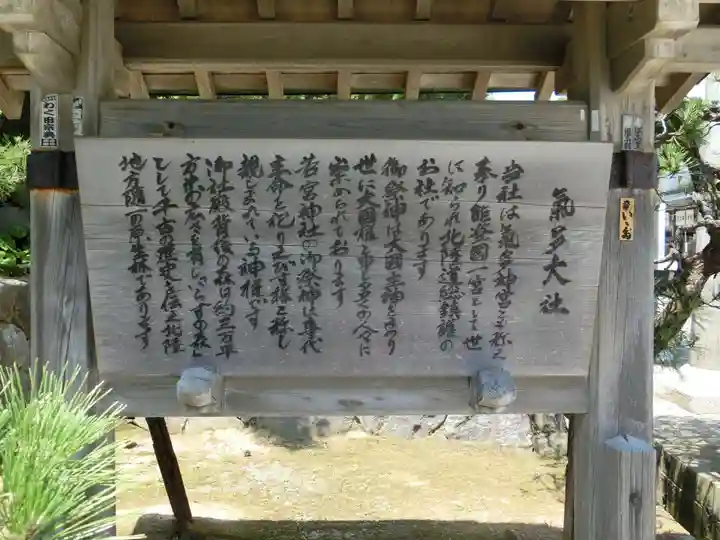 氣多大社
当社は氣多神宮とも称え
奉り能登国一宮として世
に知られ北陸道総鎮護の
お社であります
御祭神は大国主神であり
世に大国様と申し多くの人々に
崇められております
若宮神社の御祭神は事代
主命と化りえびす様と称し
親しまれている神様です
御社殿背後の森は約三万平
方米の広さを有し入らずの森と
して千古の歴史を伝え北陸
地方随一の原生林であります